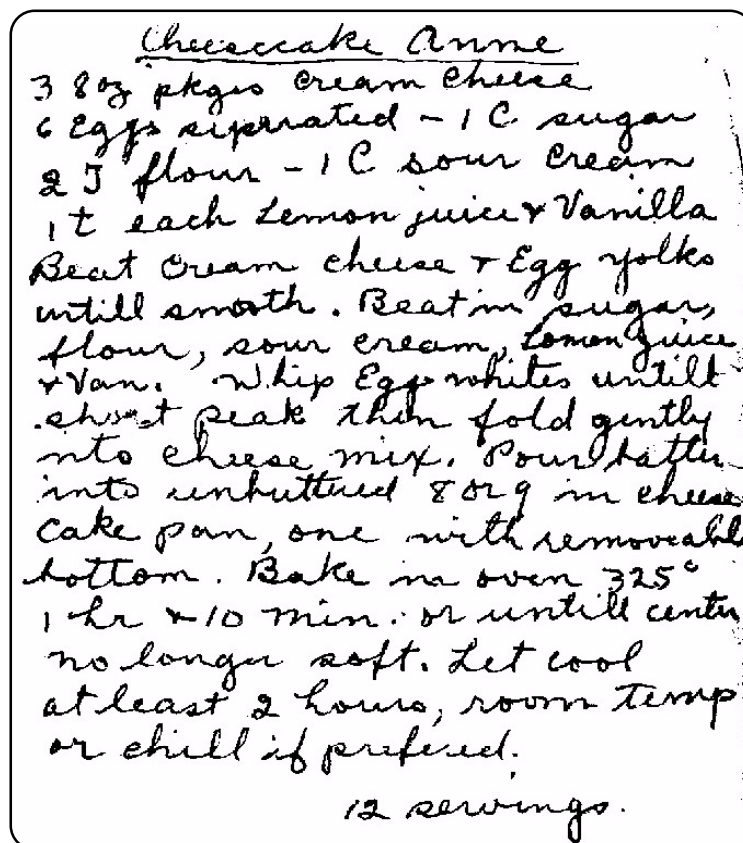 Cheesecake Anne
3 8oz pkgs cream cheese
6 Eggs seperrated - 1 C sugar
2 T flour - 1 C sour cream
1 t each Lemon juice & Vanilla
Beat cream cheese & Egg yolks
untill smooth. Beat in sugar,
flour, sour cream, Lemon juice
& Van. Whip Egg whites untill
peak then fold gently
into cheese mix. Pour batter
into unbuttured 8 or 9 in cheese
cake pan, one with removeable
bottom. Bake in oven 325°
1 hr & 10 min. or untill center
no longer soft. Let cool
at least 2 hours, room temp
or chill if prefered.
12 servings.